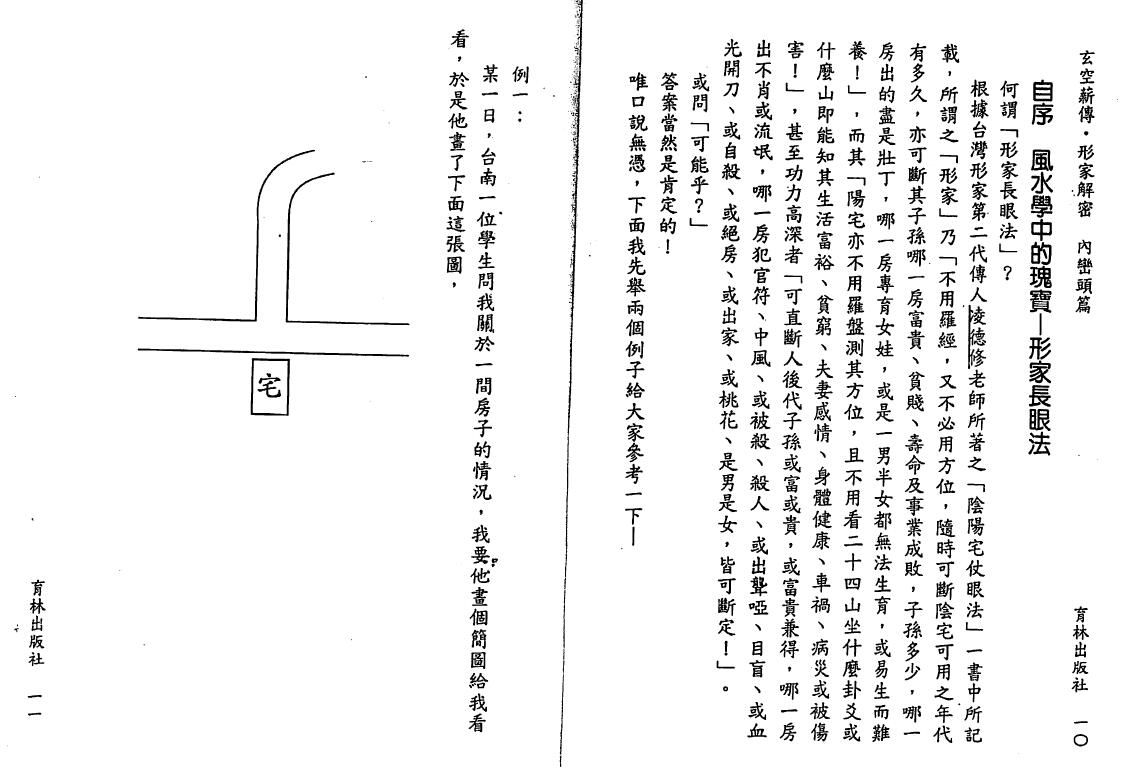 玄空薪傳・形家解密　內巒頭篇
育林出版社　一〇
自序　風水學中的瑰寶─形家長眼法
何謂「形家長眼法」？
根據台灣形家第二代傳人凌德修老師所著之「陰陽宅仗眼法」一書中所記
載，所謂之「形家」乃「不用羅經，又不必用方位，隨時可斷陰宅可用之年代
有多久，亦可斷其子孫哪一房富貴、貧賤、壽命及事業成敗，子孫多少，哪一
房出的盡是壯丁，哪一房專育女娃，或是一男半女都無法生育，或易生而難
養！」，而其「陽宅亦不用羅盤測其方位，且不用看二十四山坐什麼卦爻或
什麼山即能知其生活富裕、貧窮、夫妻感情、身體健康、車禍、病災或被傷
害！」，甚至功力高深者「可直斷人後代子孫或富或貴，或富貴兼得，哪一房
出不肖或流氓，哪一房犯官符、中風、或被殺、殺人、或出聾啞、目盲、或血
光開刀、或自殺、或絕房、或出家、或桃花、是男是女，皆可斷定！」。
或問「可能乎？」
答案當然是肯定的！
唯口說無憑，下面我先舉兩個例子給大家參考一下─
例一：
某一日，台南一位學生問我關於一間房子的情況，我要他畫個簡圖給我看
看，於是他畫了下面這張圖，
宅
育林出版社　一一